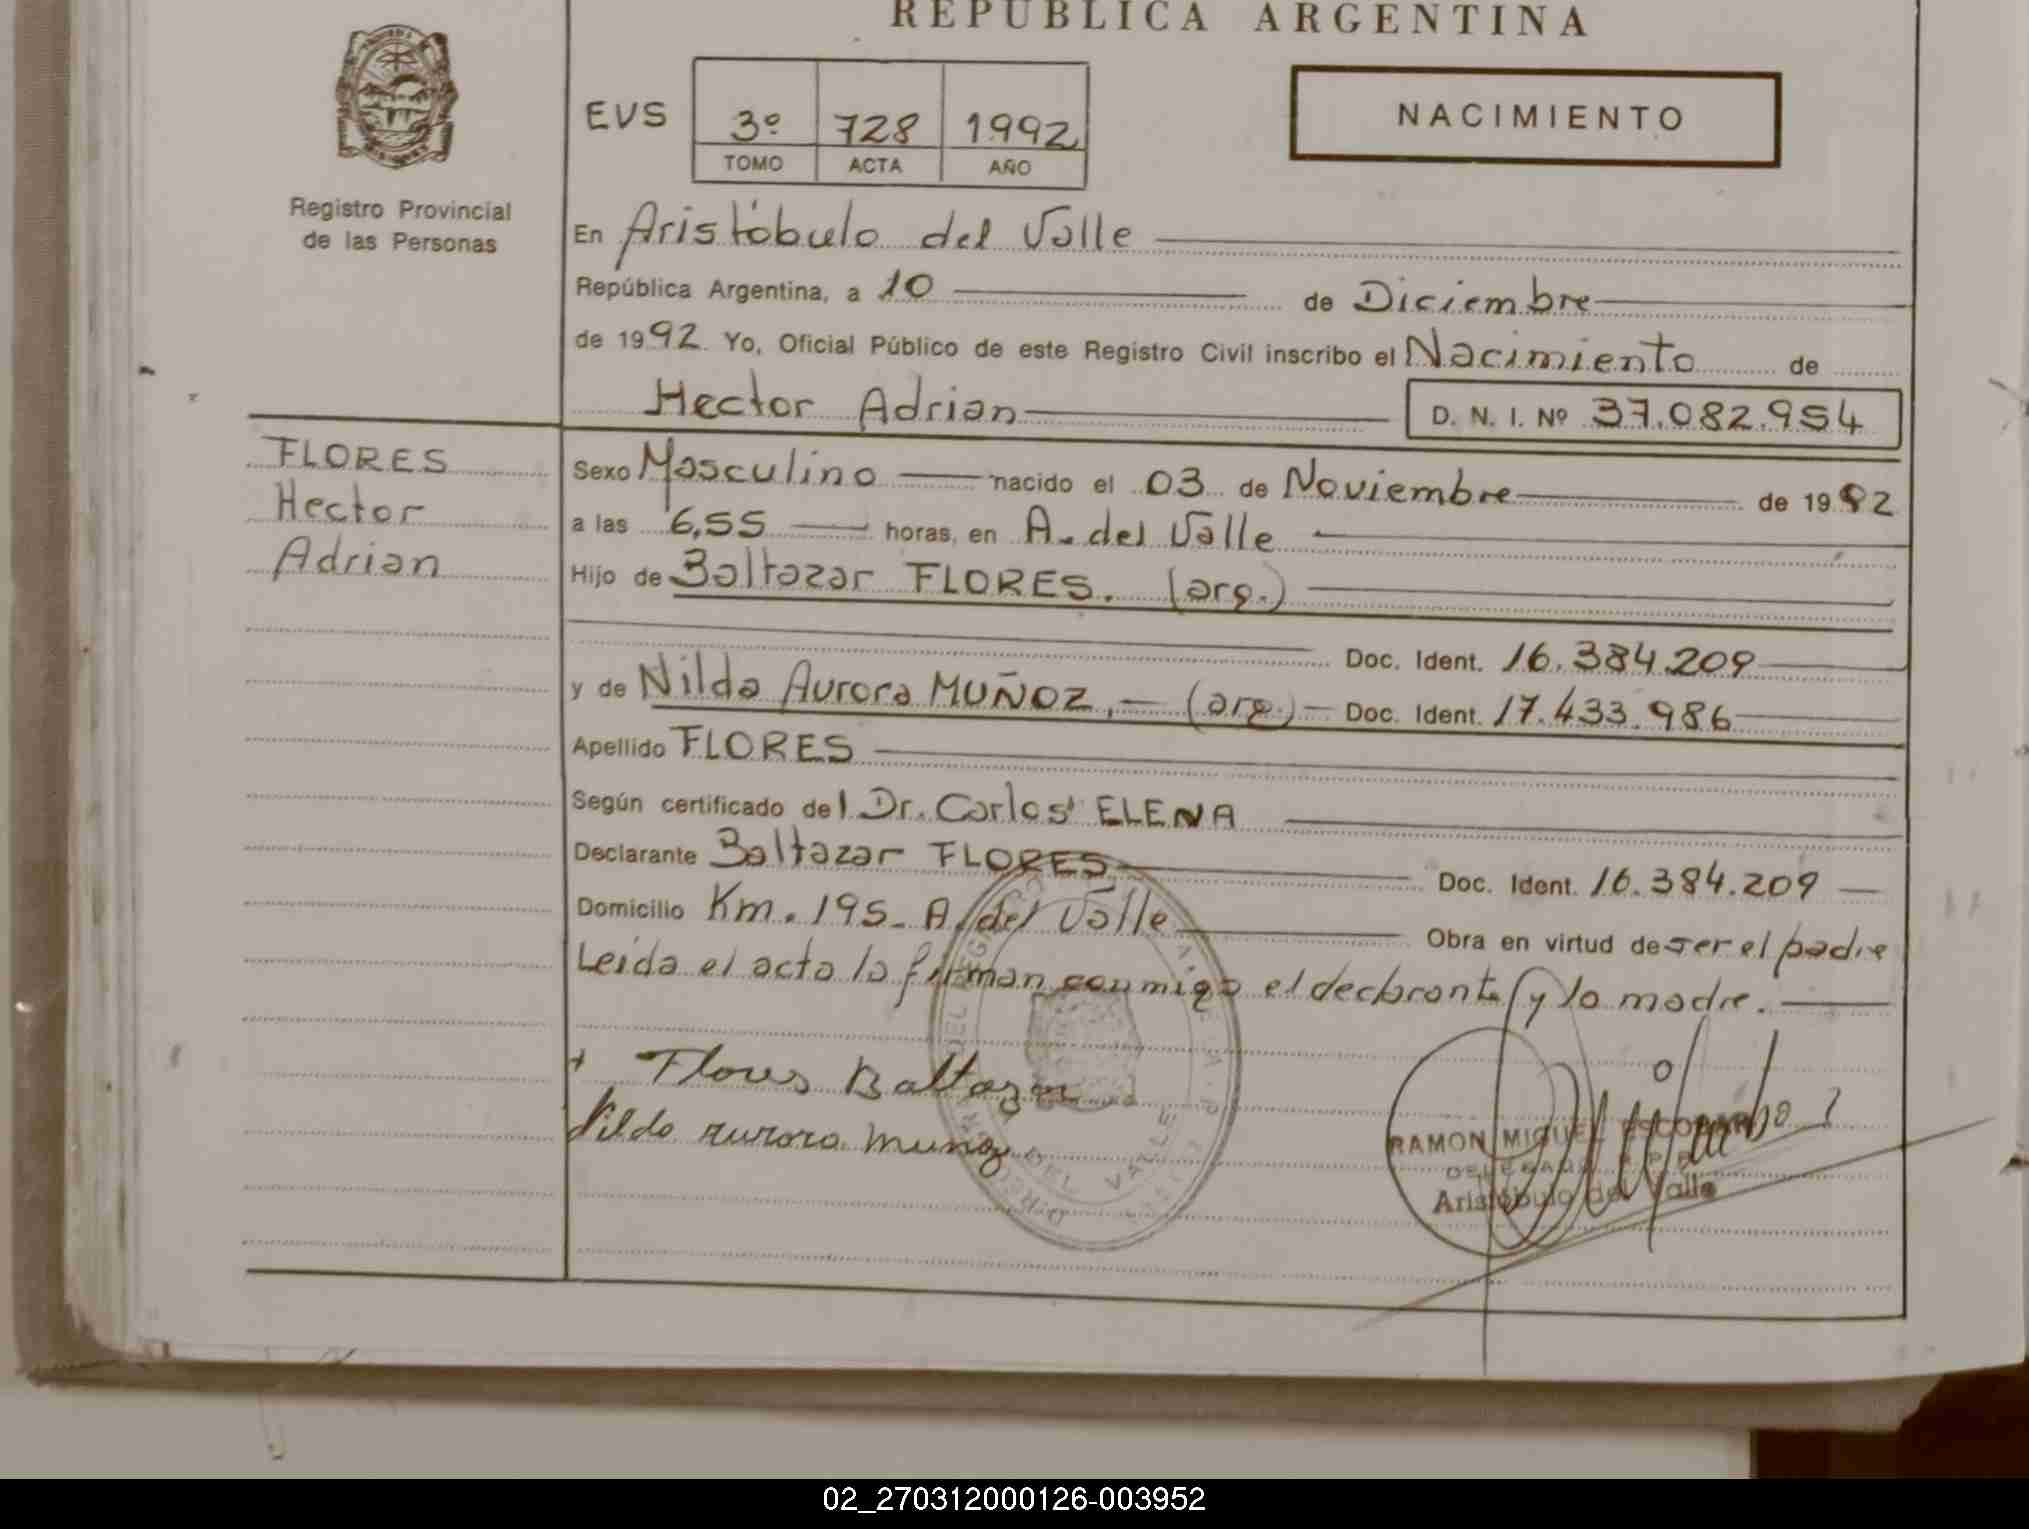 REPUBLICA ARGENTINA
EVS 3º 728 1992
TOMO ACTA AÑO
NACIMIENTO
Registro Provincial
de las Personas
En Aristóbulo del Valle
República Argentina, a 10 de Diciembre
de 1992. Yo, Oficial Público de este Registro Civil inscribo el Nacimiento de
Hector Adrian D. N. I. Nº 37.082.954
FLORES
Hector
Adrian
Sexo Masculino nacido el 03 de Noviembre de 1992
a las 6,55 horas, en A. del Valle
Hijo de Baltazar FLORES. (arg.)
Doc. Ident. 16.384.209
y de Nilda Aurora MUÑOZ.- (arg.) Doc. Ident. 17.433.986
Apellido FLORES
Según certificado del Dr. Carlos ELENA
Declarante Baltazar FLORES Doc. Ident. 16.384.209
Domicilio Km. 195- A. del Valle Obra en virtud de ser el padre
Leida el acta la firman conmigo el declarante y la madre.
+ Flores Baltazar
Nilda Aurora Muñoz
RAMON MIGUEL ESCOBAR
DELEGADO R.P.P.
Aristóbulo del Valle
DEL VALLE
02_270312000126-003952